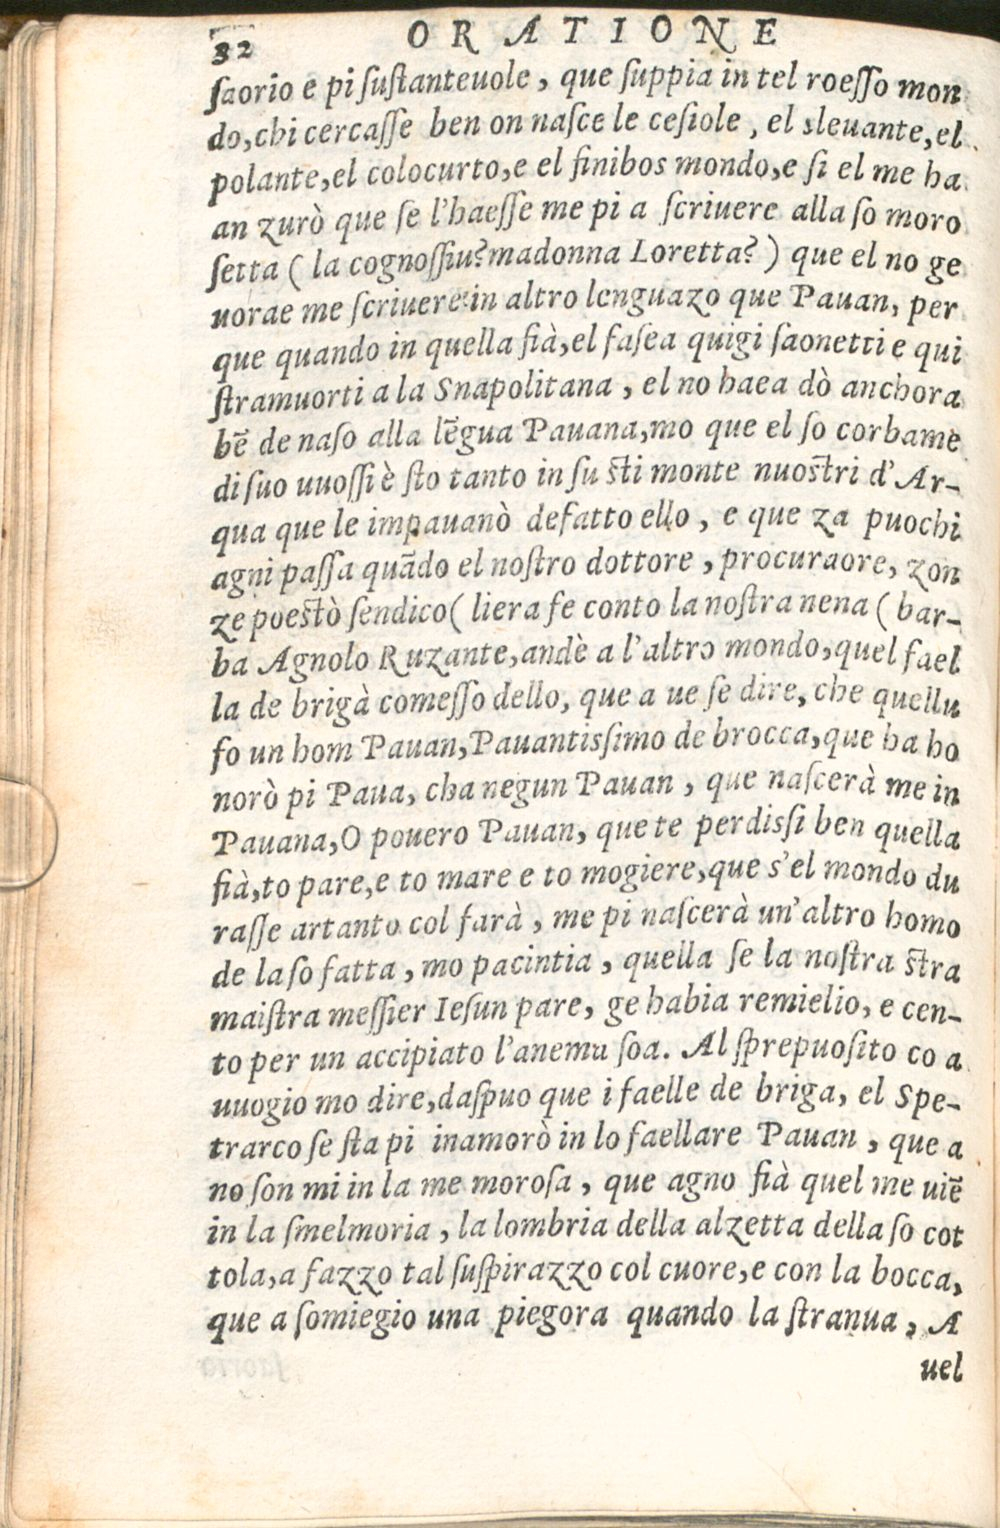 32 ORATIONE
ſaorio e pi ſuſtanteuole, que ſuppia in tel roeſſo mon
do, chi cercaſſe ben on naſce le ceſiole, el sleuante, el
polante, el colocurto, e el finibos mondo, e ſi el me ha
an zurò que ſe l'haeſſe me pi a ſcriuere alla ſo moro
ſetta ( la cognoſſiu? madonna Loretta? ) que el no ge
uorae me ſcriuere in altro lenguazo que Pauan, per
que quando in quella fià, el faſea quigi ſaonetti e qui
ſtramuorti a la Snapolitana, el no haea dò anchora
bẽ de naſo alla lẽgua Pauana, mo que el ſo corbame
di ſuo uuoſſi è ſto tanto in ſu ſti monte nuoſtri d'Ar-
qua que le impauanò defatto ello, e que za puochi
agni paſſa quãdo el noſtro dottore, procuraore, zon
ze poeſtò ſendico ( liera fe conto la noſtra nena ( bar-
ba Agnolo Ruzante, andè a l'altro mondo, quel fael
la de brigà comeſſo dello, que a ue ſe dire, che quellu
fo un hom Pauan, Pauantisſimo de brocca, que ha ho
norò pi Paua, cha negun Pauan, que naſcerà me in
Pauana, O pouero Pauan, que te perdisſi ben quella
fià, to pare, e to mare e to mogiere, que s'el mondo du
raſſe artanto col farà, me pi naſcerà un'altro homo
de la ſo fatta, mo pacintia, quella ſe la noſtra ſtra
maiſtra meſſier Ieſun pare, ge habia remielio, e cen-
to per un accipiato l'anema ſoa. Al ſprepuoſito co a
uuogio mo dire, daſpuo que i faelle de briga, el Spe-
trarco ſe ſta pi inamorò in lo faellare Pauan, que a
no ſon mi in la me moroſa, que agno fià quel me uiẽ
in la ſmelmoria, la lombria della alzetta della ſo cot
tola, a fazzo tal ſuſpirazzo col cuore, e con la bocca,
que a ſomiegio una piegora quando la ſtranua, A
uel